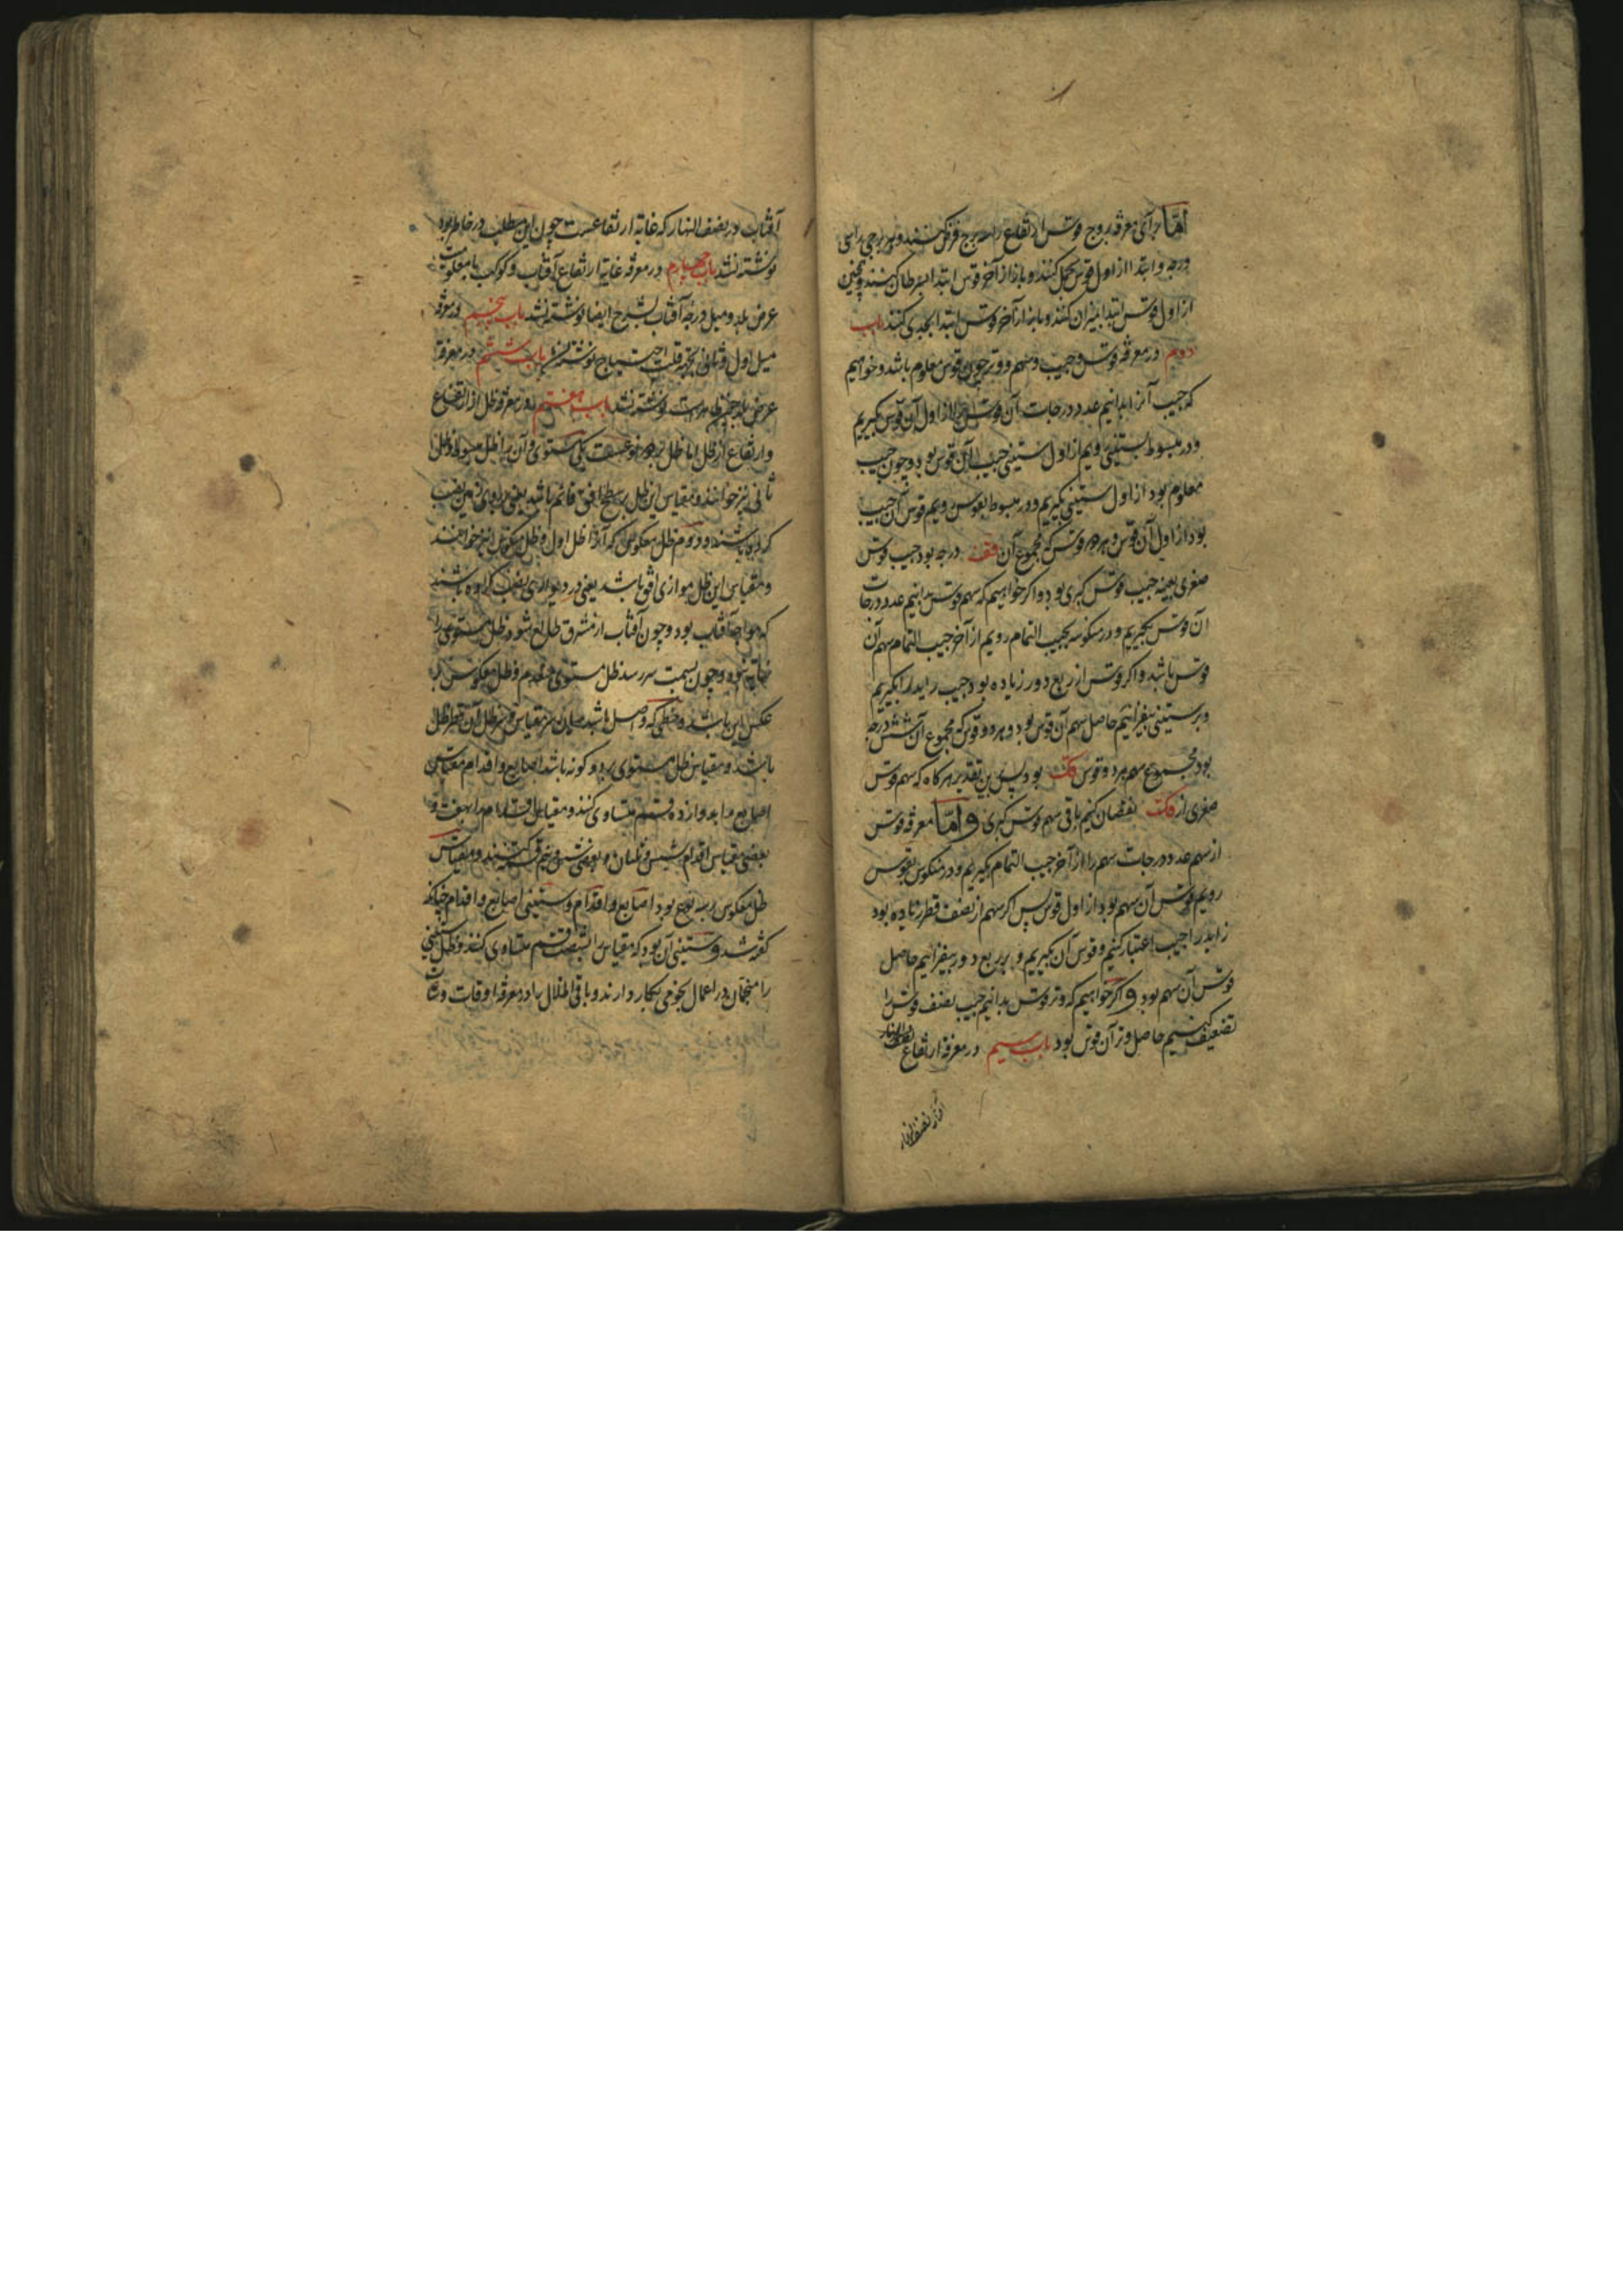 امّا برای معرفة بروج قوس ارتفاع را سه برج فرض کنند و هر برجی را سی
درجه و ابتدا از اول قوس بحمل کنند و باز از آخر قوس ابتدا بسرطان کنند و همچنین
از اول قوس ابتدا بمیزان کنند و باز از آخر قوس ابتدا بجدی کنند باب
دوم در معرفة قوس و جیب و سهم و وتر چون قوس معلوم باشد و خواهیم
که جیب آنرا بدانیم عدد درجات آن قوس را از اول آن قوس بگیریم
و در مبسوط بستینی رویم از اول ستینی جیب آن قوس بود و چون جیب
معلوم بود از اول ستینی بگیریم و در مبسوط بقوس رویم قوس آن جیب
بود از اول آن قوس و هر دو قوس که مجموع آن قف درجه بود جیب قوس
صغری بعینه جیب قوس کبری بود و اگر خواهیم که سهم قوس بدانیم عدد درجات
آن قوس بگیریم و در منکوسه بجیب التمام رویم از آخر جیب التمام سهم آن
قوس باشد و اگر قوس از ربع دور زیاده بود جیب زاید را بگیریم
و بر ستینی بیفزائیم حاصل سهم آن قوس بود و هر دو قوس که مجموع آن شش درجه
بود مجموع سهم هر دو قوس قک بود پس برین تقدیر هرگاه که سهم قوس
صغری از قک نقصان کنیم باقی سهم قوس کبری و امّا معرفة قوس
از سهم عدد درجات سهم را از آخر جیب التمام بگیریم و در منکوس بقوس
رویم قوس آن سهم بود از اول قوس پس اگر سهم از نصف قطر زیاده بود
زاید را جیب اعتبار کنیم و قوس آن بگیریم و بر ربع دور بیفزائیم حاصل
قوس آن سهم بود و اگر خواهیم که وتر قوس بدانیم جیب نصف قوس را
تضعیف کنیم حاصل وتر آن قوس بود باب سیم در معرفة ارتفاع نصف النهار
آفتاب در نصف النهار که غایة ارتفاعست چون این مطلب در خاطر بود
نوشته نشد باب چهارم در معرفة غایة ارتفاع آفتاب و کوکب با معلومیت
عرض بلد و میل درجه آفتاب بشرح ایضا نوشته نشد باب پنجم در معرفة
میل اول و ثانی بجهة قلت احتیاج نوشته نشد باب ششم در معرفة
عرض بلد چون ظاهرست نوشته نشد باب هفتم در معرفة ظل از ارتفاع
و ارتفاع از ظل اما ظل بر دو نوعست یکی مستوی و آن را ظل مبسوط و ظل
ثانی نیز خوانند و مقیاس این ظل بر سطح افق قائم باشد یعنی در زمین نصب
کرده باشند و دوم ظل معکوس که آنرا ظل اول و ظل منکوس نیز خوانند
و مقیاس این ظل موازی افق باشد یعنی در دیواری نصب کرده باشند
که مواجه آفتاب بود و چون آفتاب از مشرق طالع شود ظل مستوی را
نهایة نبود و چون بسمت سر رسد ظل مستوی منعدم و ظل معکوس بر
عکس این باشد و خطی که وصل باشد میان سر مقیاس و سر ظل آن قطر ظل
باشد و مقیاس ظل مستوی بر دو گونه باشد اصابع و اقدام مقیاس
اصابع را بدوازده قسم متساوی کنند و مقیاس اقدام را بهفت و
بعضی مقیاس اقدام شش و ثلثان و بعضی شش و نیم قسمت کنند و مقیاس
ظل معکوس بر سه نوع بود اصابع و اقدام و ستینی اصابع و اقدام چنانکه
گفته شد و ستینی آن بود که مقیاس را بشصت قسم متساوی کنند و ظل ستینی
را منجمان در اعمال نجومی بکار دارند و باقی اظلال را در معرفة اوقات و ساعات